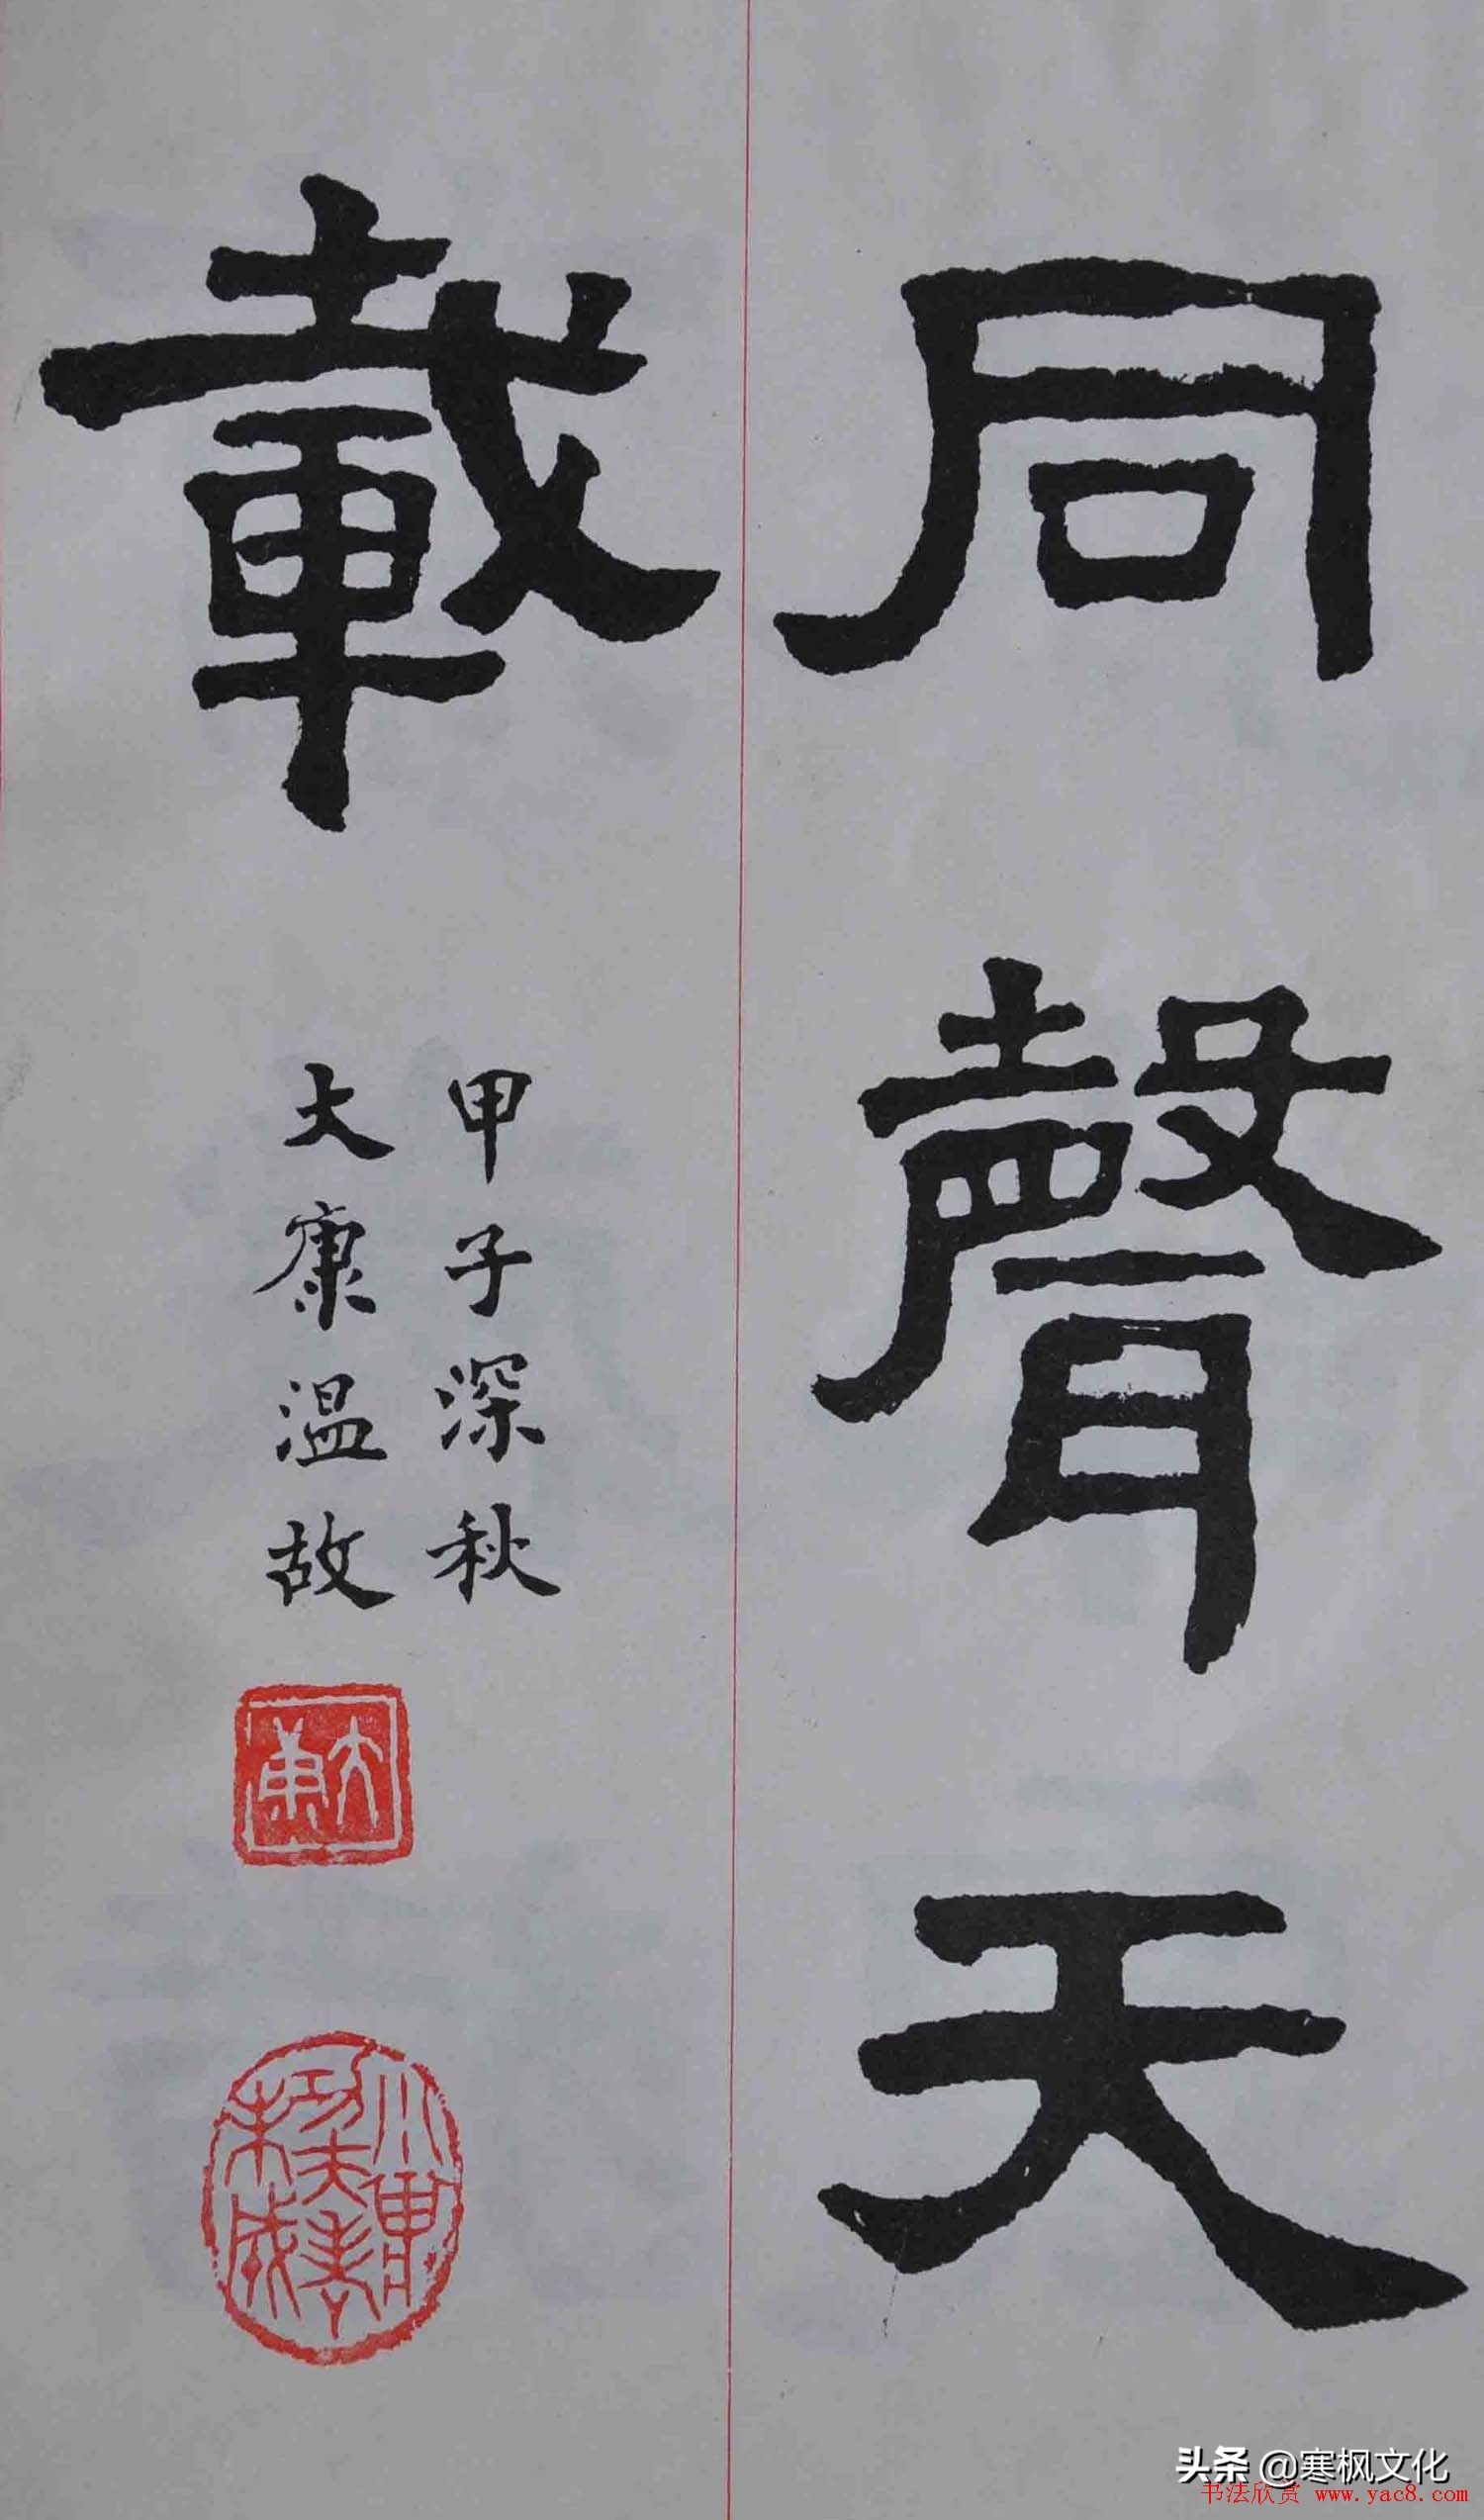 同聲天
載
甲子深秋
大康温故
大康
头条 @寒枫文化
书法欣赏 www.yac8.com